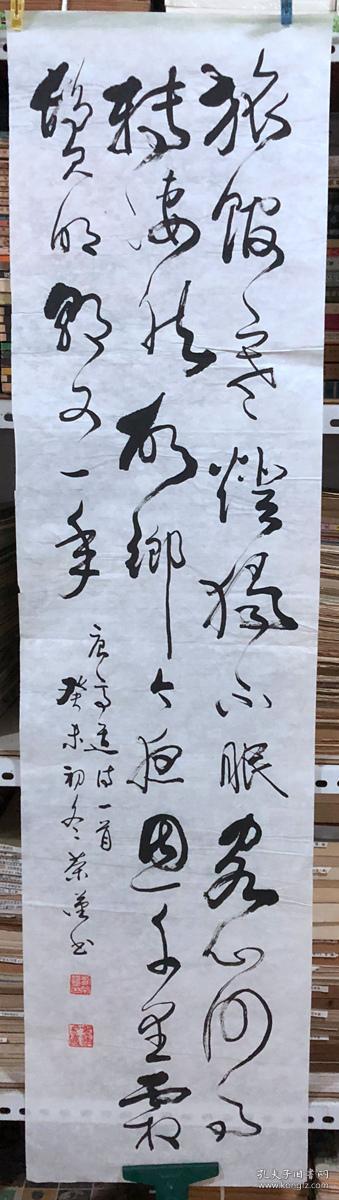 旅館寒燈獨不眠客心何事
轉凄然故鄉今夜思千里霜
鬢明朝又一年
唐高適诗一首
癸未初冬荣书
孔夫子旧书网
www.kongfz.com